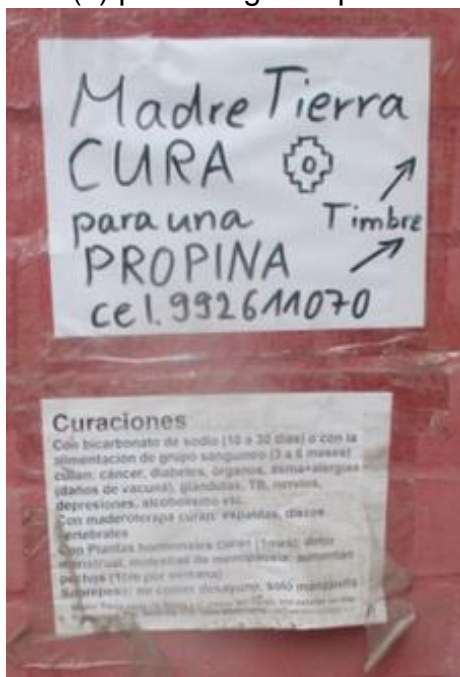 Madre Tierra
CURA
para una Timbre
PROPINA
cel. 992611070
Curaciones
Con bicarbonato de sodio (10 a 30 dias) o con la
alimentación de grupo sanguineo (3 a 6 meses)
curan: cáncer, diabetes, órganos, asma+alergias
(daños de vacuna), glándulas, TB, nervios,
depresiones, alcoholismo etc.
Con maderoterapa curan: espaldas, discos
vertebrales
Con Plantas hormonales curan (1mes): dolor
menstrual, molestias de menopausia; aumentan
pechos (1cm por semana)
Sobrepeso: no comer desayuno, solo manzanilla